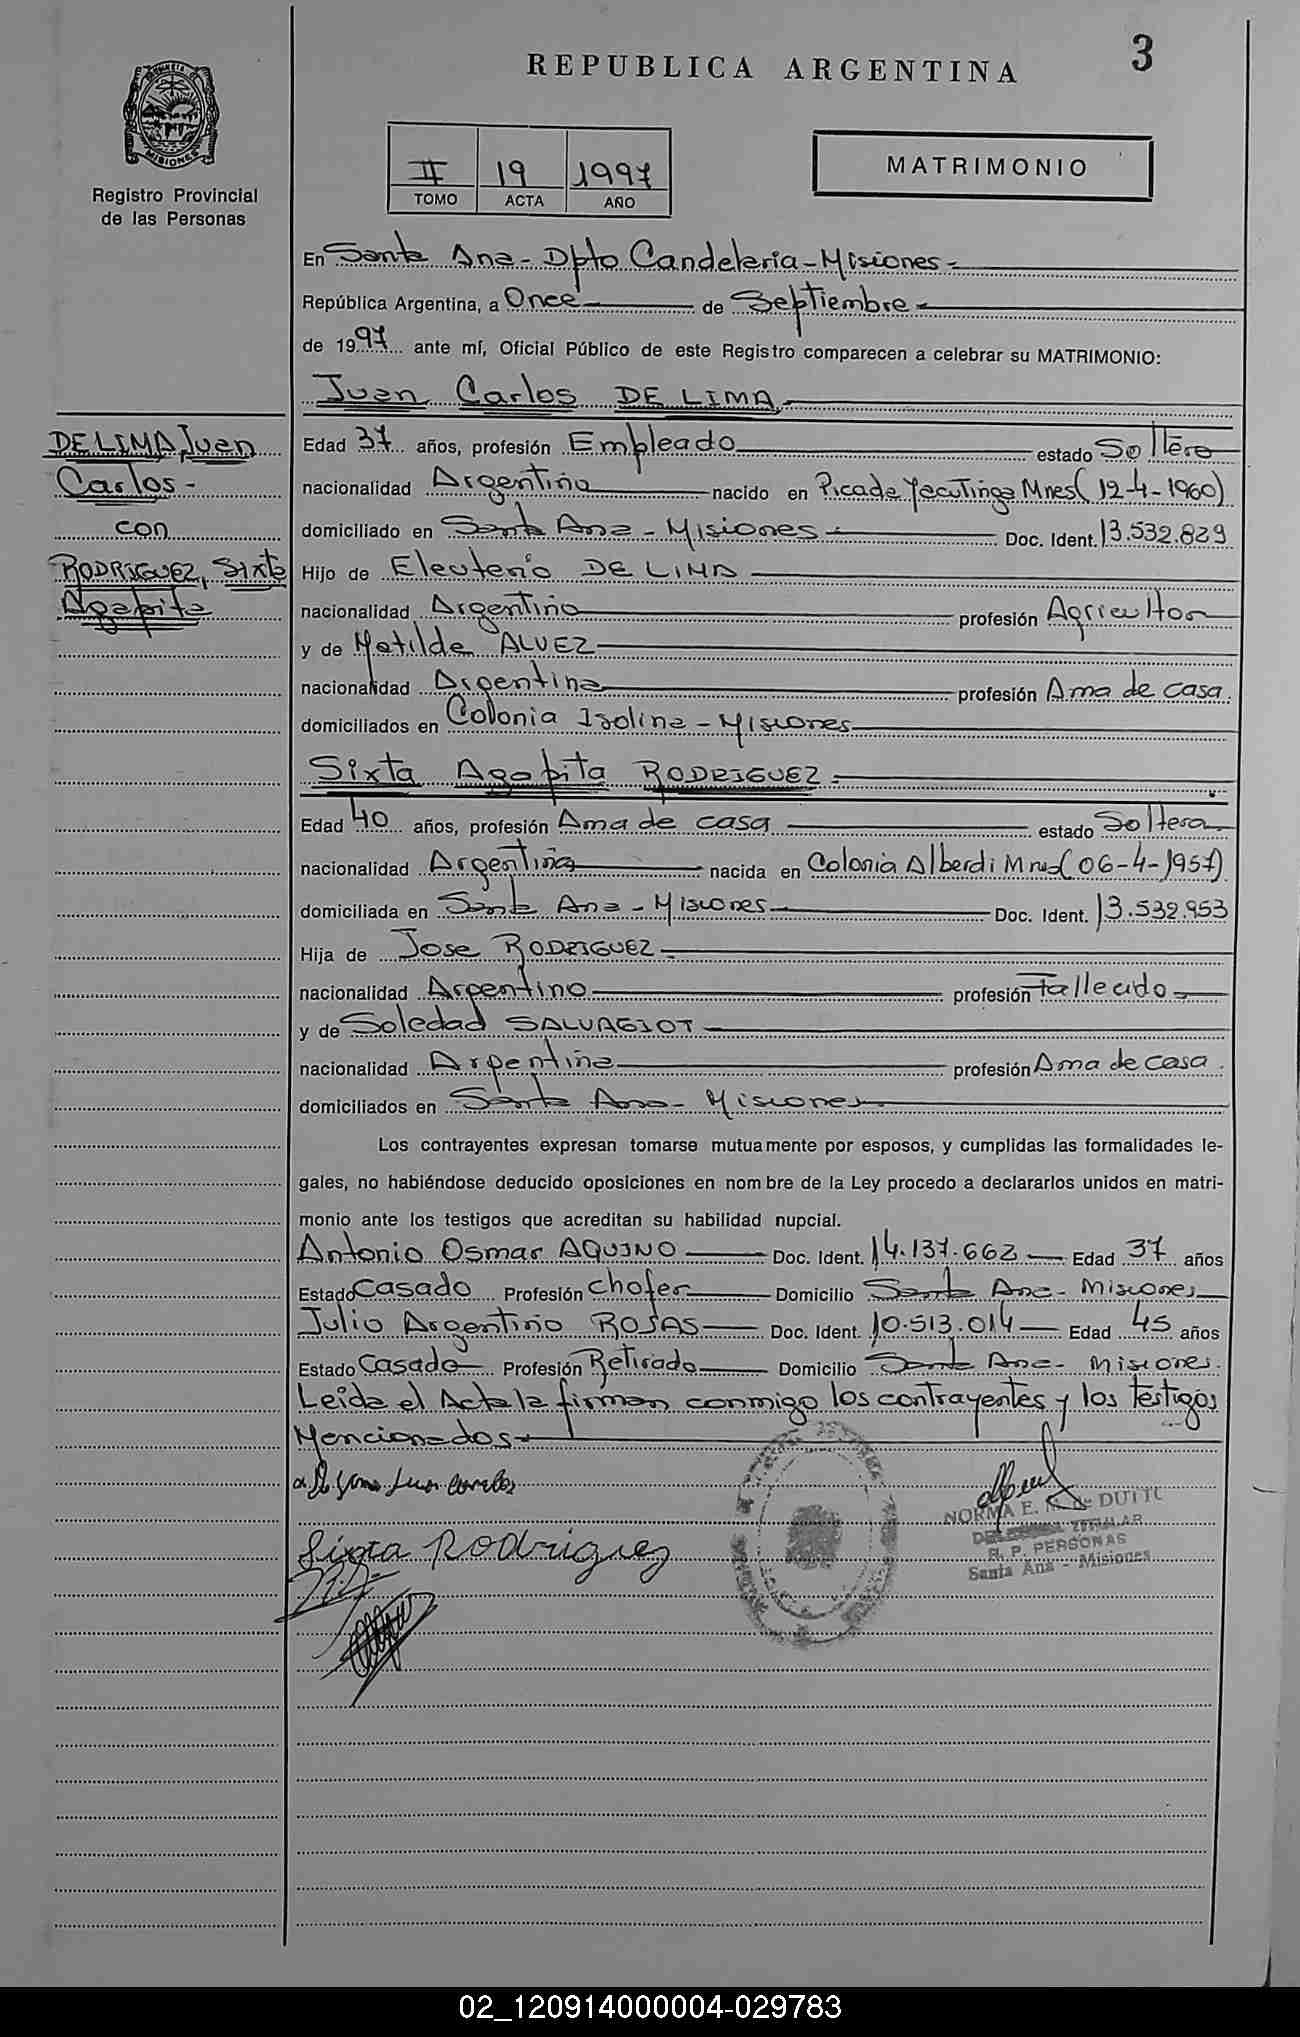 REPUBLICA ARGENTINA
3
MISIONES
Registro Provincial
de las Personas
II 19 1997
TOMO ACTA AÑO
MATRIMONIO
En Santa Ana - Dpto Candelaria - Misiones -
República Argentina, a Once de Septiembre
de 1997 ante mí, Oficial Público de este Registro comparecen a celebrar su MATRIMONIO:
Juan Carlos DE LIMA
DE LIMA, Juan
Carlos -
con
RODRIGUEZ, Sixta
Agapita
Edad 37 años, profesión Empleado estado Soltero
nacionalidad Argentino nacido en Picada Yacutinga Mnes (12-4-1960)
domiciliado en Santa Ana - Misiones Doc. Ident. 13.532.829
Hijo de Eleuterio DE LIMA
nacionalidad Argentino profesión Agricultor
y de Matilde ALVEZ
nacionalidad Argentina profesión Ama de casa.
domiciliados en Colonia Isolina - Misiones
Sixta Agapita RODRIGUEZ
Edad 40 años, profesión Ama de casa estado Soltera
nacionalidad Argentina nacida en Colonia Alberdi Mnes (06-4-1957)
domiciliada en Santa Ana - Misiones Doc. Ident. 13.532.953
Hija de Jose RODRIGUEZ
nacionalidad Argentino profesión Fallecido
y de Soledad SALVAGIOT
nacionalidad Argentina profesión Ama de casa.
domiciliados en Santa Ana - Misiones
Los contrayentes expresan tomarse mutuamente por esposos, y cumplidas las formalidades le-
gales, no habiéndose deducido oposiciones en nombre de la Ley procedo a declararlos unidos en matri-
monio ante los testigos que acreditan su habilidad nupcial.
Antonio Osmar AQUINO Doc. Ident. 14.137.662 Edad 37 años
Estado Casado Profesión Chofer Domicilio Santa Ana - Misiones
Julio Argentino ROJAS Doc. Ident. 10.513.014 Edad 45 años
Estado Casado Profesión Retirado Domicilio Santa Ana - Misiones.
Leida el Acta la firman conmigo los contrayentes y los testigos
Mencionados
Sixta Rodriguez
NORMA E. M. de DUTTO
DELEGADA TITULAR
R. P. PERSONAS
Santa Ana - Misiones
02_120914000004-029783